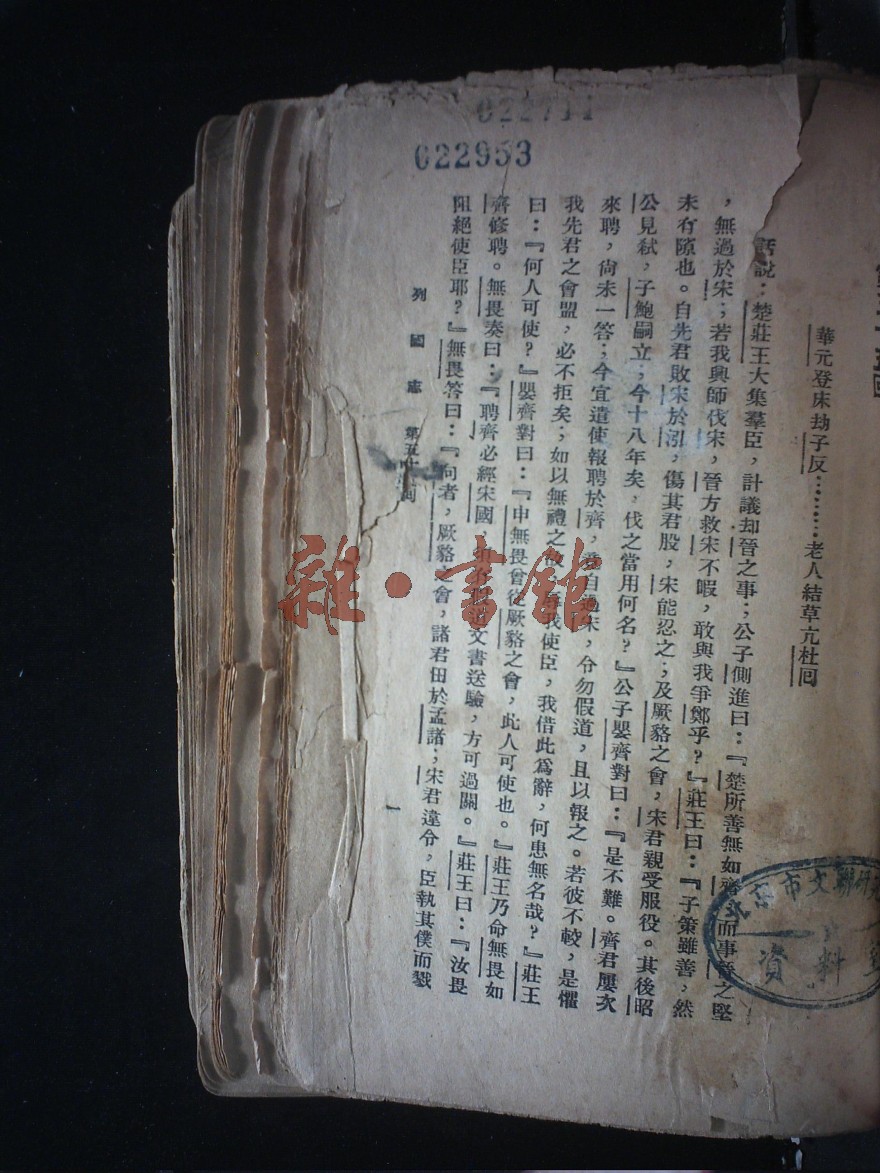 022711
022953
第五十五回
華元登床劫子反………老人結草亢杜回
話說：楚莊王大集羣臣，計議却晉之事；公子側進曰：『楚所善無如齊，而事晉之堅
，無過於宋；若我興師伐宋，晉方救宋不暇，敢與我爭鄭乎？』莊王曰：『子策雖善，然
未有隙也。自先君敗宋於泓，傷其君股，宋能忍之；及厥貉之會，宋君親受服役。其後昭
公見弒，子鮑嗣立；今十八年矣，伐之當用何名？』公子嬰齊對曰：『是不難。齊君屢次
來聘，尙未一答；今宜遣使報聘於齊，竟自過宋，令勿假道，且以報之。若彼不較，是懼
我先君之會盟，必不拒矣；如以無禮之故，辱我使臣，我借此爲辭，何患無名哉？』莊王
曰：『何人可使？』嬰齊對曰：『申無畏曾從厥貉之會，此人可使也。』莊王乃命無畏如
齊修聘。無畏奏曰：『聘齊必經宋國，須有假道文書送驗，方可過關。』莊王曰：『汝畏
阻絕使臣耶？』無畏答曰：『向者，厥貉之會，諸君田於孟諸；宋君違令，臣執其僕而戮
列國志 第五十 回
一
北京市文聯研究
資料
雜·書館